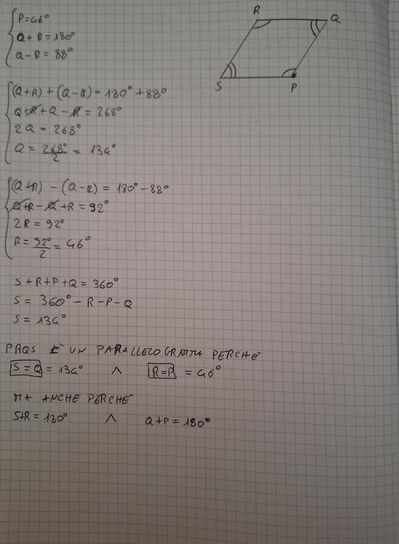 P=46°
Q+R=180°
Q-R=88°
R
Q
S
P
(Q+R) + (Q-R) = 180°+88°
Q+R+Q-R = 268°
2Q = 268°
Q = 268°/2 = 134°
(Q+R) - (Q-R) = 180-88°
Q+R-Q+R = 92°
2R = 92°
R = 92°/2 = 46°
S+R+P+Q=360°
S = 360° - R-P-Q
S = 134°
PRQS È UN PARALLELOGRAMMA PERCHÉ
S=Q = 134° ∧ R=P = 46°
MA ANCHE PERCHÉ
S+R=180° ∧ Q+P=180°